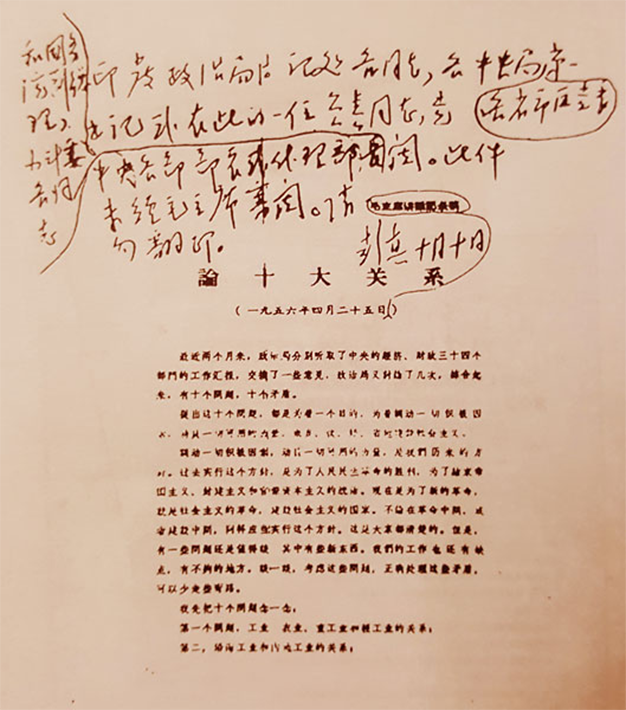 和国务
印发政治局书记处各同志，各中央局第一
书记或在此的一位负责同志，
各省市区党委
中央各部部长或代理部阅。此件
未经毛主席审阅。请
勿翻印。
彭真 十月十日
各同
志
毛主席讲话记录稿
論十大关系
（一九五六年四月二十五日）
最近两个月来，政治局分别听取了中央的经济、财政三十四个
部門的工作汇报，交换了一些意见，政治局又討論了几次，綜合起
来，有十个問題，十个矛盾。
提出这十个問題，都是为着一个目的，为着調动一切积极因
調动一切积极因素，动員一切可用的力量，是我們历来的方
針。过去实行这个方針，是为了人民民主革命的胜利，为了結束帝
国主义、封建主义和官僚資本主义的統治。現在是为了新的革命，
就是社会主义的革命，建設社会主义的国家。不論在革命中間，或
者建設中間，同样应当实行这个方針。这是大家都清楚的。但是，
有一些問題还是值得談 其中有些新东西。我們的工作也还有缺
点，有不够的地方。談一談，考虑这些問題，正确处理这些矛盾，
可以少走些弯路。
我先把十个問題念一念：
第一个問題，工业 农业、重工业和輕工业的关系；
第二，沿海工业和内地工业的关系；